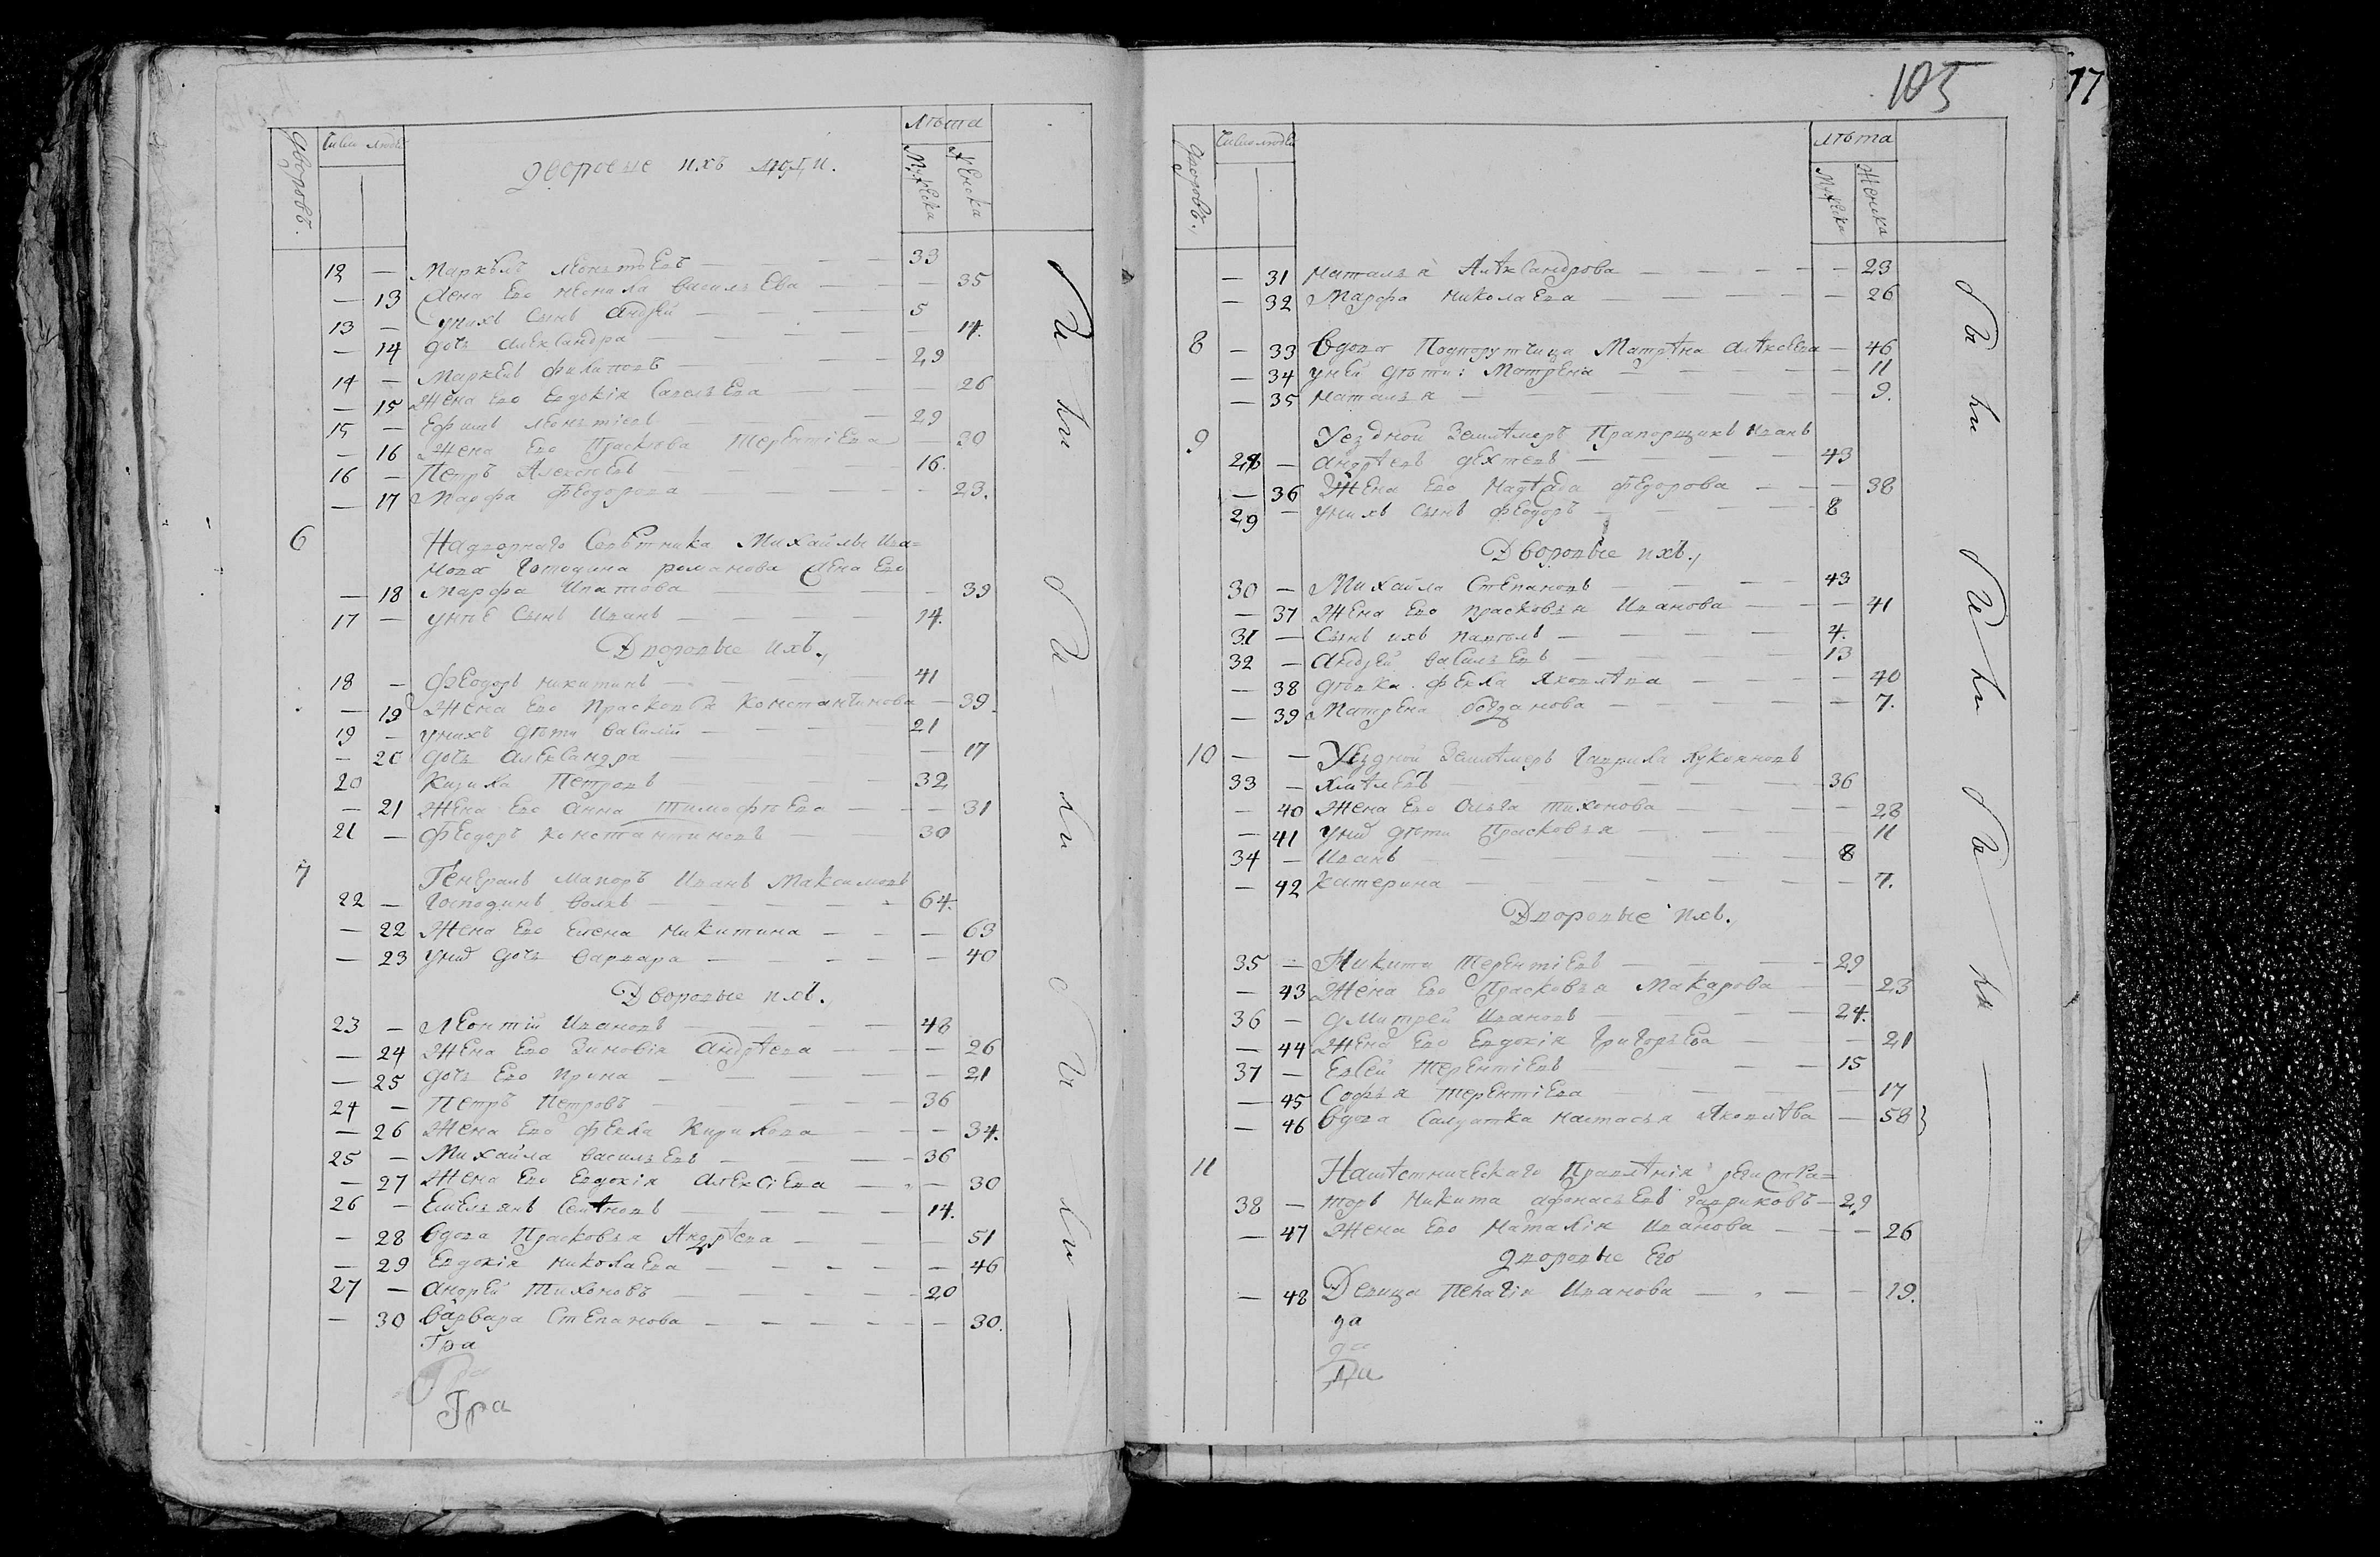 дворовъ.
Число людей
дворовые ихъ люди.
лѣта
Мужеска
Женска
12 — Маркелъ Леонтьевъ — 33
— 13 Жена Ево Неонила Васильева — 35
13 — у нихъ Сынъ Андрей — 5
— 14 дочь Александра — 14.
14 — Маркелъ Филиповъ — 29
— 15 Жена Ево Евдокія Савельева — 26
15 — Ефимъ Леонтіевъ — 29
— 16 Жена Ево Прасковья Терентіева — 30
16 — Петръ Алексѣевъ — 16.
— 17 Марфа Феодорова — 23.
6 Надворнаго Советника Михайлы Ива=
нова Господина романова Жена Ево
— 18 Марфа Ипатова — 39
17 — у нее Сынъ Иванъ — 14.
Дворовые ихъ.,
18 — Феодоръ Никитинъ — 41
— 19 Жена Ево Прасковья Константинова — 39.
19 — у нихъ дѣти Василій — 21
— 20 дочь Александра — 17
20 Кирила Петровъ — 32
— 21 Жена Ево Анна Тимофѣева — 31
21 — Феодоръ Константиновъ — 30
7 Генералъ Маиоръ Иванъ Максимовъ
22 — Господинъ Волкъ — 64.
— 22 Жена Ево Елена Никитина — 63
— 23 у них дочь Варвара — 40
Дворовые ихъ.,
23 — Леонтій Ивановъ — 48
— 24 Жена Ево Зиновія Андрѣева — 26
— 25 дочь Ево Ирина — 21
24 — Петръ Петровъ — 36
— 26 Жена Ево Фекла Кирилова — 34.
25 — Михайла Васильевъ — 36
— 27 Жена Ево Евдокія Алексіева — 30
26 — Емельянъ Семѣновъ — 14.
— 28 Вдова Прасковья Андрѣева — 51
— 29 Евдокія Николаева — 46
27 — Андрей Тихоновъ — 20
— 30 Варвара Степанова — 30.
Гра
Гра
Гра
105
17
дворовъ.,
Число людей
лѣта
Мужеска
Женска
— 31 Наталья Алѣксандрова — 23
— 32 Марфа Николаева — 26
8 — 33 Вдова Подпорутчица Матрѣна Алѣксѣева — 46
— 34 у ней дѣти: Матрена — 11
— 35 Наталья — 9.
9 Уездной Землѣмеръ Прапорщикъ Иванъ
28 — Андрѣевъ Дехтевъ — 43
— 36 Жена Ево Надѣжда Федорова — 38
29 — у нихъ Сынъ Феодоръ — 8
Дворовые ихъ.,
30 — Михайла Степановъ — 43
— 37 Жена Ево Прасковья Иванова — 41
31 — Сынъ ихъ Павелъ — 4.
32 — Андрей Васильевъ — 13
— 38 дѣвка Фекла Яковлѣва — 40
— 39 Матрена Богданова — 7.
10 — — Уездной Землѣмеръ Гаврила Лукояновъ
33 — Хмѣлевъ — 36
— 40 Жена Ево Ольга Тихонова — 28
— 41 у них дѣти Прасковья — 11
34 — Иванъ — 8
— 42 Катерина — 7.
Дворовые ихъ.,
35 — Никита Терентіевъ — 29
— 43 Жена Ево Прасковья Макарова — 23
36 — Дмитрей Ивановъ — 24.
— 44 Жена Ево Евдокія Григорьева — 21
37 — Евсей Терентіевъ — 15
— 45 Софья Терентіева — 17
— 46 Вдова Салдатка Настасья Яковлѣва — 58
11 Намѣстническаго Правлѣнія регистра=
38 — торъ Никита Афонасьевъ Гавриковъ — 29
— 47 Жена Ево Наталія Иванова — 26
дворовые Его
— 48 Девица Пелагія Иванова — 19.
да
да